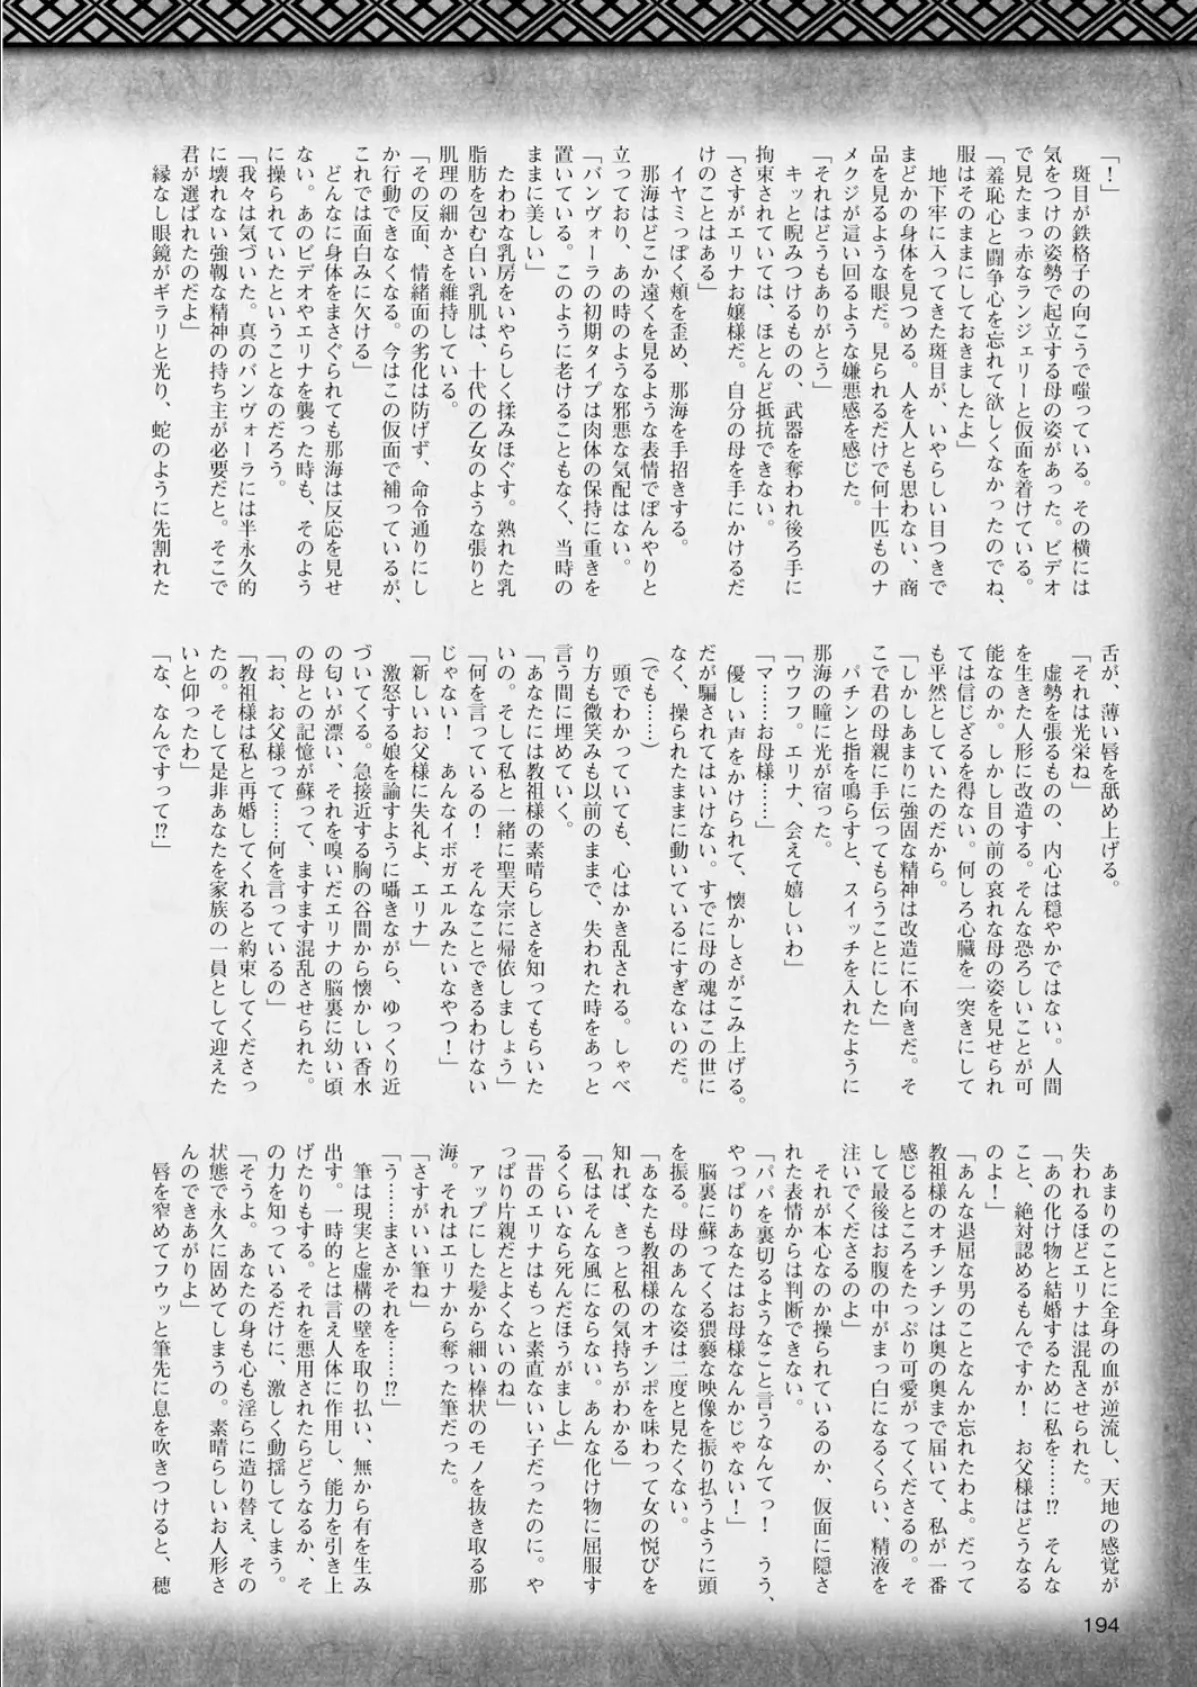 「！」
　斑目が鉄格子の向こうで嗤っている。その横には
気をつけの姿勢で起立する母の姿があった。ビデオ
で見たまっ赤なランジェリーと仮面を着けている。
「羞恥心と闘争心を忘れて欲しくなかったのでね、
服はそのままにしておきましたよ」
　地下牢に入ってきた斑目が、いやらしい目つきで
まどかの身体を見つめる。人を人とも思わない、商
品を見るような眼だ。見られるだけで何十匹ものナ
メクジが這い回るような嫌悪感を感じた。
「それはどうもありがとう」
　キッと睨みつけるものの、武器を奪われ後ろ手に
拘束されていては、ほとんど抵抗できない。
「さすがエリナお嬢様だ。自分の母を手にかけるだ
けのことはある」
　イヤミっぽく頬を歪め、那海を手招きする。
　那海はどこか遠くを見るような表情でぼんやりと
立っており、あの時のような邪悪な気配はない。
「バンヴォーラの初期タイプは肉体の保持に重きを
置いている。このように老けることもなく、当時の
ままに美しい」
　たわわな乳房をいやらしく揉みほぐす。熟れた乳
脂肪を包む白い乳肌は、十代の乙女のような張りと
肌理の細かさを維持している。
「その反面、情緒面の劣化は防げず、命令通りにし
か行動できなくなる。今はこの仮面で補っているが、
これでは面白みに欠ける」
　どんなに身体をまさぐられても那海は反応を見せ
ない。あのビデオやエリナを襲った時も、そのよう
に操られていたということなのだろう。
「我々は気づいた。真のバンヴォーラには半永久的
に壊れない強靱な精神の持ち主が必要だと。そこで
君が選ばれたのだよ」
　縁なし眼鏡がギラリと光り、蛇のように先割れた
舌が、薄い唇を舐め上げる。
「それは光栄ね」
　虚勢を張るものの、内心は穏やかではない。人間
を生きた人形に改造する。そんな恐ろしいことが可
能なのか。しかし目の前の哀れな母の姿を見せられ
ては信じざるを得ない。何しろ心臓を一突きにして
も平然としていたのだから。
「しかしあまりに強固な精神は改造に不向きだ。そ
こで君の母親に手伝ってもらうことにした」
　パチンと指を鳴らすと、スイッチを入れたように
那海の瞳に光が宿った。
「ウフフ。エリナ、会えて嬉しいわ」
「マ……お母様……」
　優しい声をかけられて、懐かしさがこみ上げる。
だが騙されてはいけない。すでに母の魂はこの世に
なく、操られたままに動いているにすぎないのだ。
（でも……）
　頭でわかっていても、心はかき乱される。しゃべ
り方も微笑みも以前のままで、失われた時をあっと
言う間に埋めていく。
「あなたには教祖様の素晴らしさを知ってもらいた
いの。そして私と一緒に聖天宗に帰依しましょう」
「何を言っているの！　そんなことできるわけない
じゃない！　あんなイボガエルみたいなやつ！」
「新しいお父様に失礼よ、エリナ」
　激怒する娘を諭すように囁きながら、ゆっくり近
づいてくる。急接近する胸の谷間から懐かしい香水
の匂いが漂い、それを嗅いだエリナの脳裏に幼い頃
の母との記憶が蘇って、ますます混乱させられた。
「お、お父様って……何を言っているの」
「教祖様は私と再婚してくれると約束してくださっ
たの。そして是非あなたを家族の一員として迎えた
いと仰ったわ」
「な、なんですって!?」
　あまりのことに全身の血が逆流し、天地の感覚が
失われるほどエリナは混乱させられた。
「あの化け物と結婚するために私を……!?　そんな
こと、絶対認めるもんですか！　お父様はどうなる
のよ！」
「あんな退屈な男のことなんか忘れたわよ。だって
教祖様のオチンチンは奥の奥まで届いて、私が一番
感じるところをたっぷり可愛がってくださるの。そ
して最後はお腹の中がまっ白になるくらい、精液を
注いでくださるのよ」
　それが本心なのか操られているのか、仮面に隠さ
れた表情からは判断できない。
「パパを裏切るようなこと言うなんてっ！　うう、
やっぱりあなたはお母様なんかじゃない！」
　脳裏に蘇ってくる猥褻な映像を振り払うように頭
を振る。母のあんな姿は二度と見たくない。
「あなたも教祖様のオチンポを味わって女の悦びを
知れば、きっと私の気持ちがわかる」
「私はそんな風にならない。あんな化け物に屈服す
るくらいなら死んだほうがましよ」
「昔のエリナはもっと素直ないい子だったのに。や
っぱり片親だとよくないのね」
　アップにした髪から細い棒状のモノを抜き取る那
海。それはエリナから奪った筆だった。
「さすがいい筆ね」
「う……まさかそれを……!?」
　筆は現実と虚構の壁を取り払い、無から有を生み
出す。一時的とは言え人体に作用し、能力を引き上
げたりもする。それを悪用されたらどうなるか、そ
の力を知っているだけに、激しく動揺してしまう。
「そうよ。あなたの身も心も淫らに造り替え、その
状態で永久に固めてしまうの。素晴らしいお人形さ
んのできあがりよ」
　唇を窄めてフウッと筆先に息を吹きつけると、穂
194